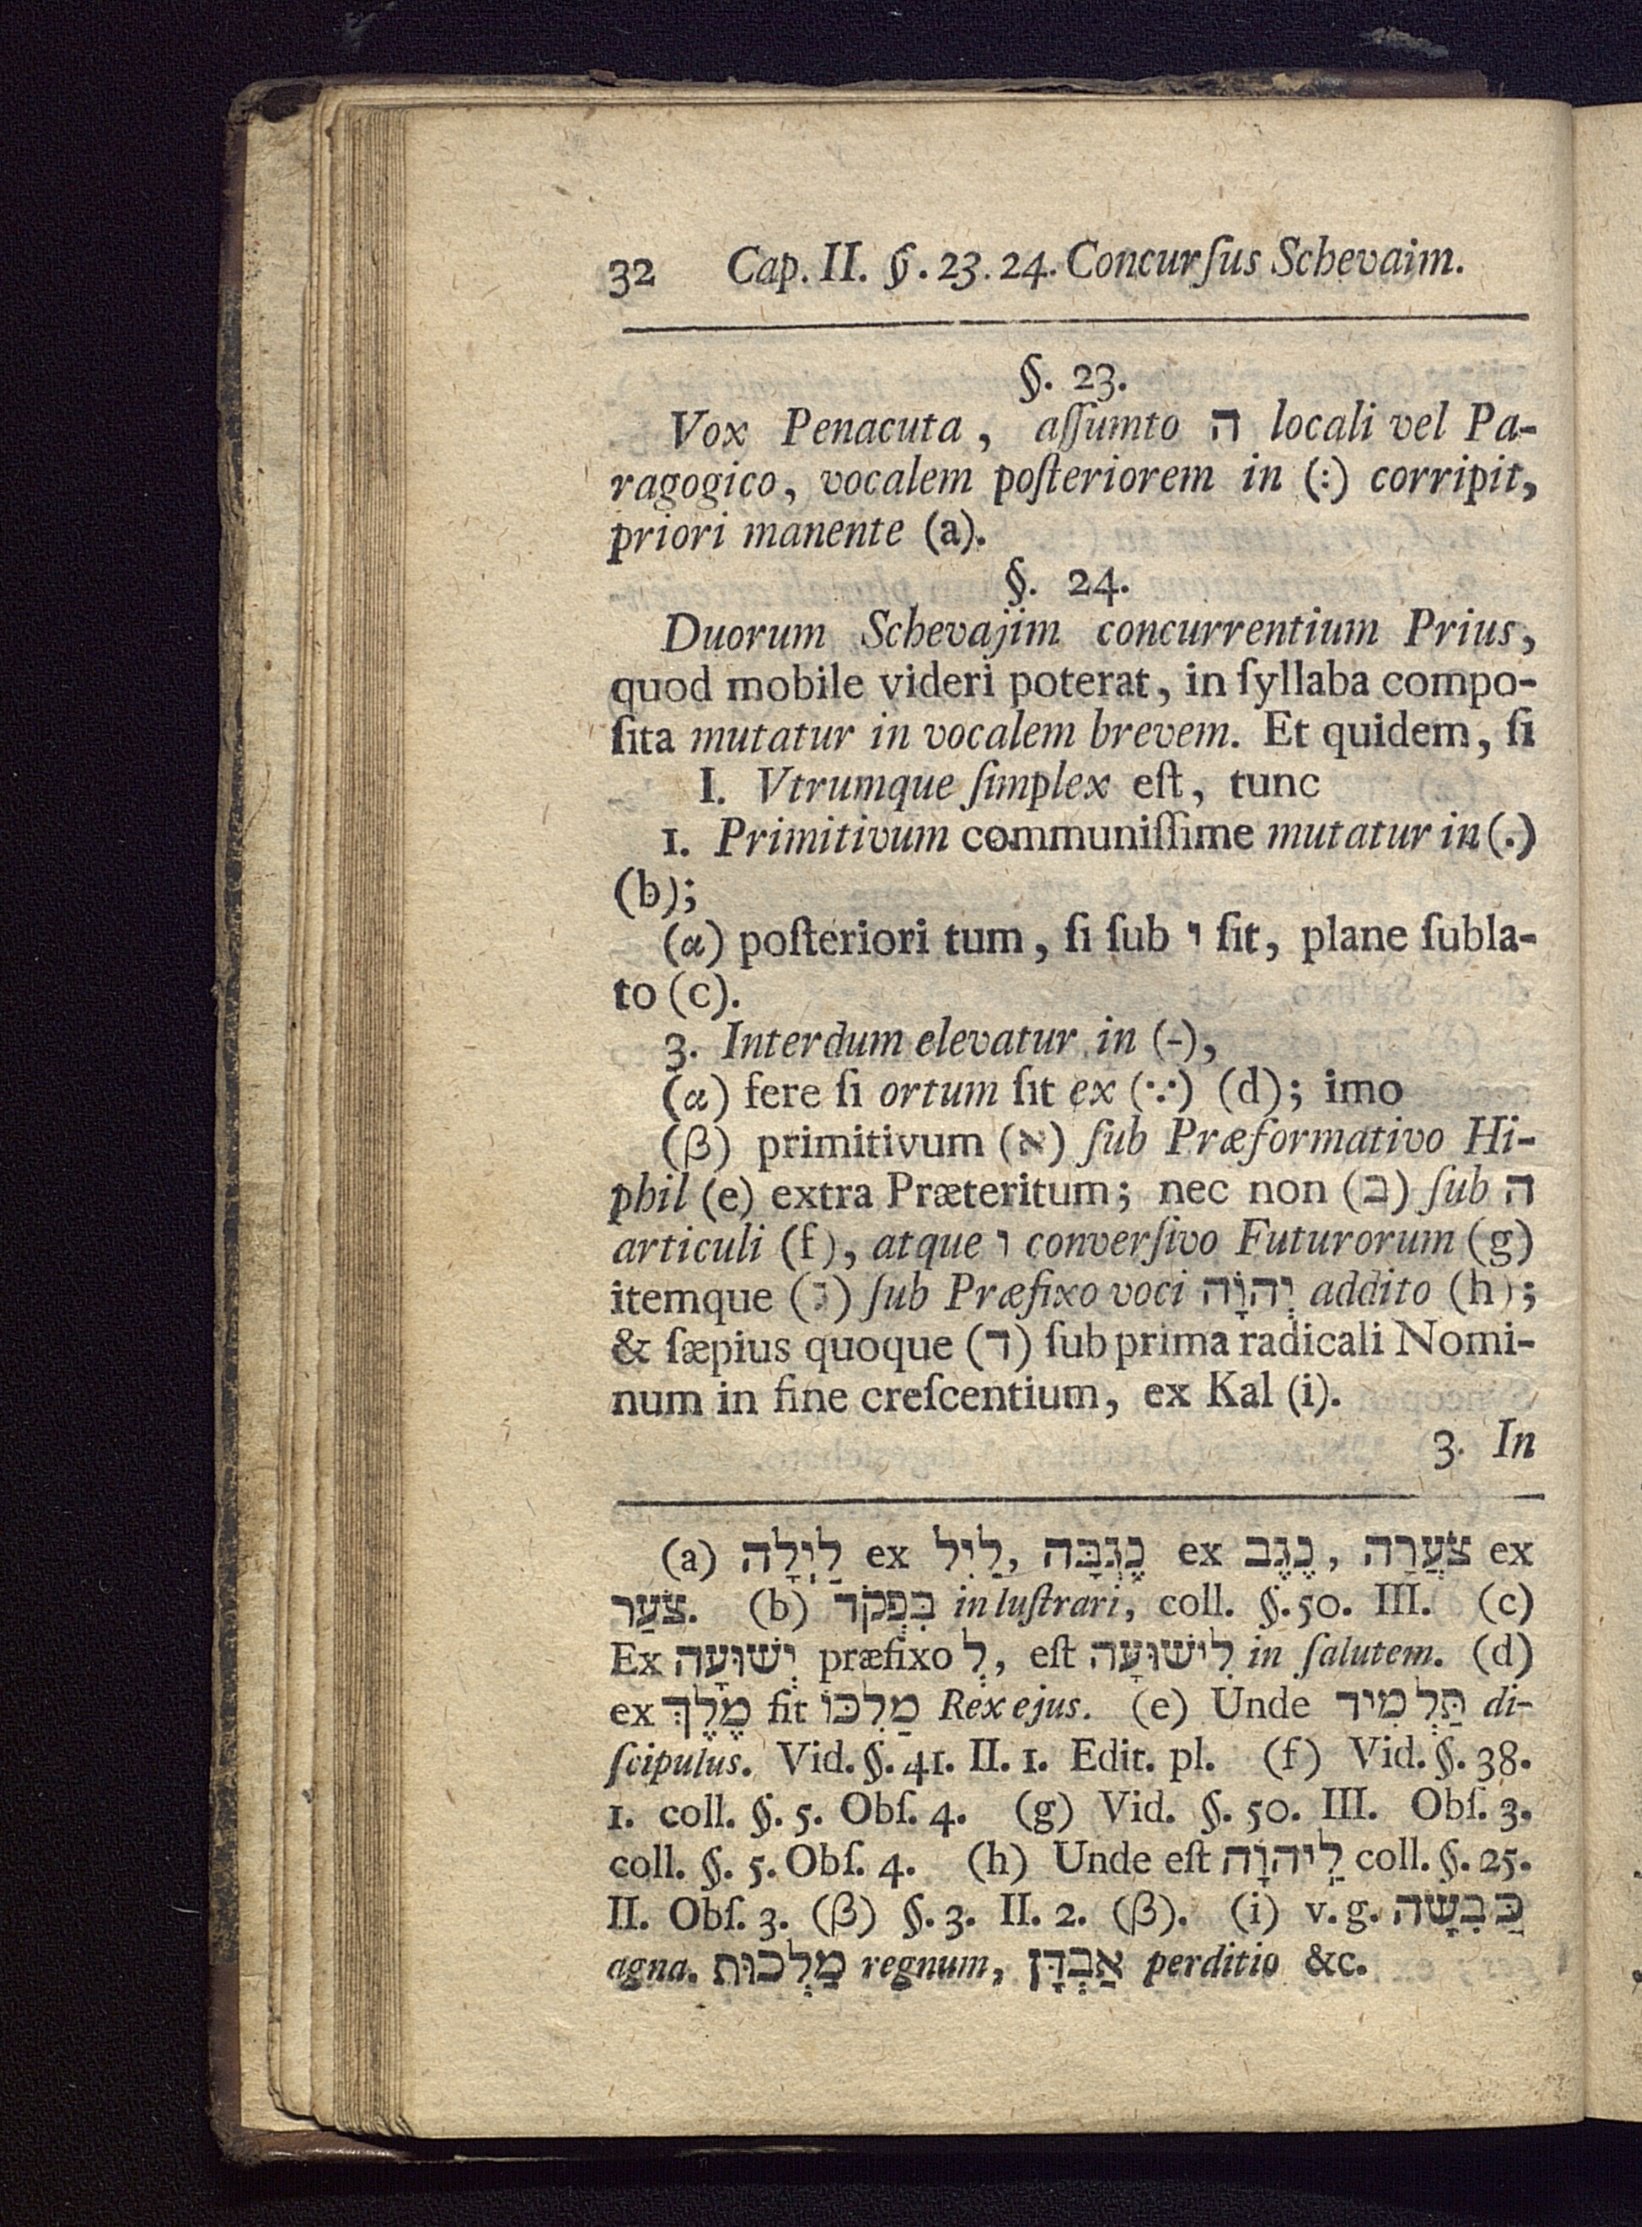 32 Cap. II. §. 23. 24. Concurſus Schevaim.
§. 23.
Vox Penacuta, aſſumto ה locali vel Pa-
ragogico, vocalem poſteriorem in (:) corripit,
priori manente (a).
§. 24.
Duorum Schevajim concurrentium Prius,
quod mobile videri poterat, in ſyllaba compo-
ſita mutatur in vocalem brevem. Et quidem, ſi
I. Vtrumque ſimplex eſt, tunc
1. Primitivum communiſſime mutatur in (.)
(b);
(α) poſteriori tum, ſi ſub י ſit, plane ſubla-
to (c).
3. Interdum elevatur in (-),
(α) fere ſi ortum ſit ex (∵) (d); imo
(β) primitivum (א) ſub Præformativo Hi-
phil (e) extra Præteritum; nec non (ב) ſub ה
articuli (f), atque ו converſivo Futurorum (g)
itemque (ג) ſub Præfixo voci יְהוָֹה addito (h);
& ſæpius quoque (ד) ſub prima radicali Nomi-
num in fine creſcentium, ex Kal (i).
3. In
(a) לַיְלָה ex לַיִל, נֶגְבָּה ex נֶגֶב, צֹעֲרָה ex
צֹעַר. (b) בִּפְקֹד in luſtrari, coll. §. 50. III. (c)
Ex יְשׁוּעָה præfixo לְ, eſt לִישׁוּעָה in ſalutem. (d)
ex מֶלֶךְ fit מַלְכּוֹ Rex ejus. (e) Unde תַּלְמִיד di-
ſcipulus. Vid. §. 41. II. 1. Edit. pl. (f) Vid. §. 38.
1. coll. §. 5. Obſ. 4. (g) Vid. §. 50. III. Obſ. 3.
coll. §. 5. Obſ. 4. (h) Unde eſt לַיהוָֹה coll. §. 25.
II. Obſ. 3. (β) §. 3. II. 2. (β). (i) v. g. כַּבְשָׂה
agna. מַלְכוּת regnum, אַבְדָּן perditio &c.